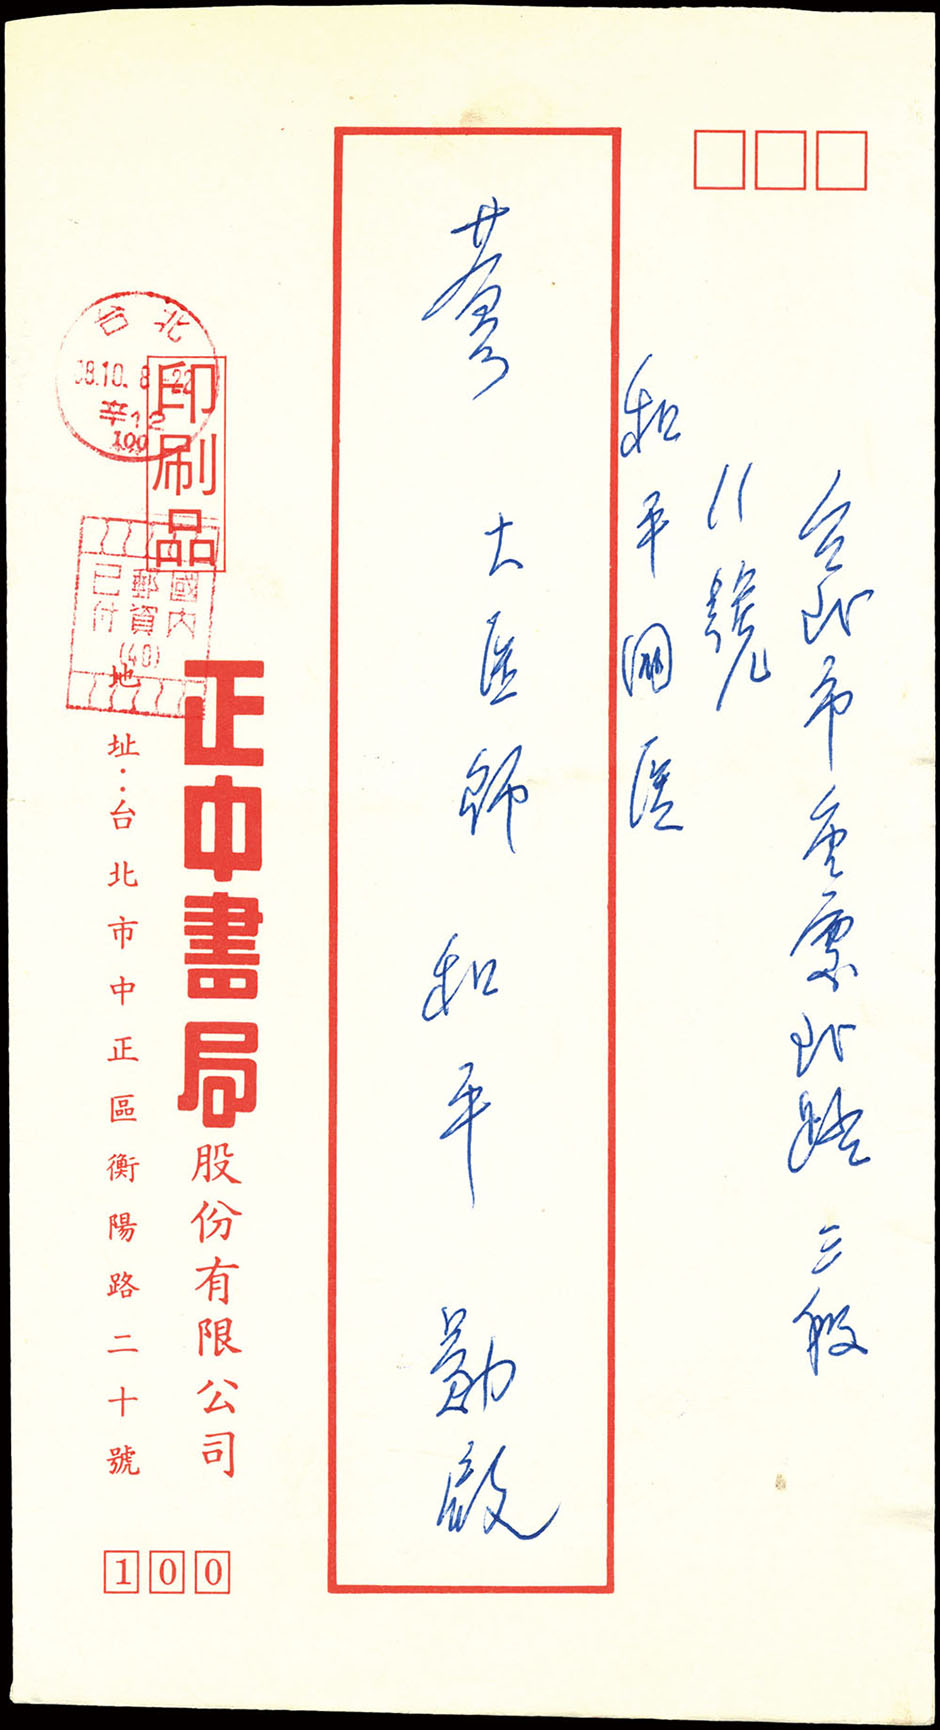 台北市重慶北路三段
11號
和平國医
大医師 和平 勛啟
台北
8.10.8-22
辛12
100
印刷品
國內
郵資
已付
(40)
正中書局股份有限公司
地址：台北市中正區衡陽路二十號
100